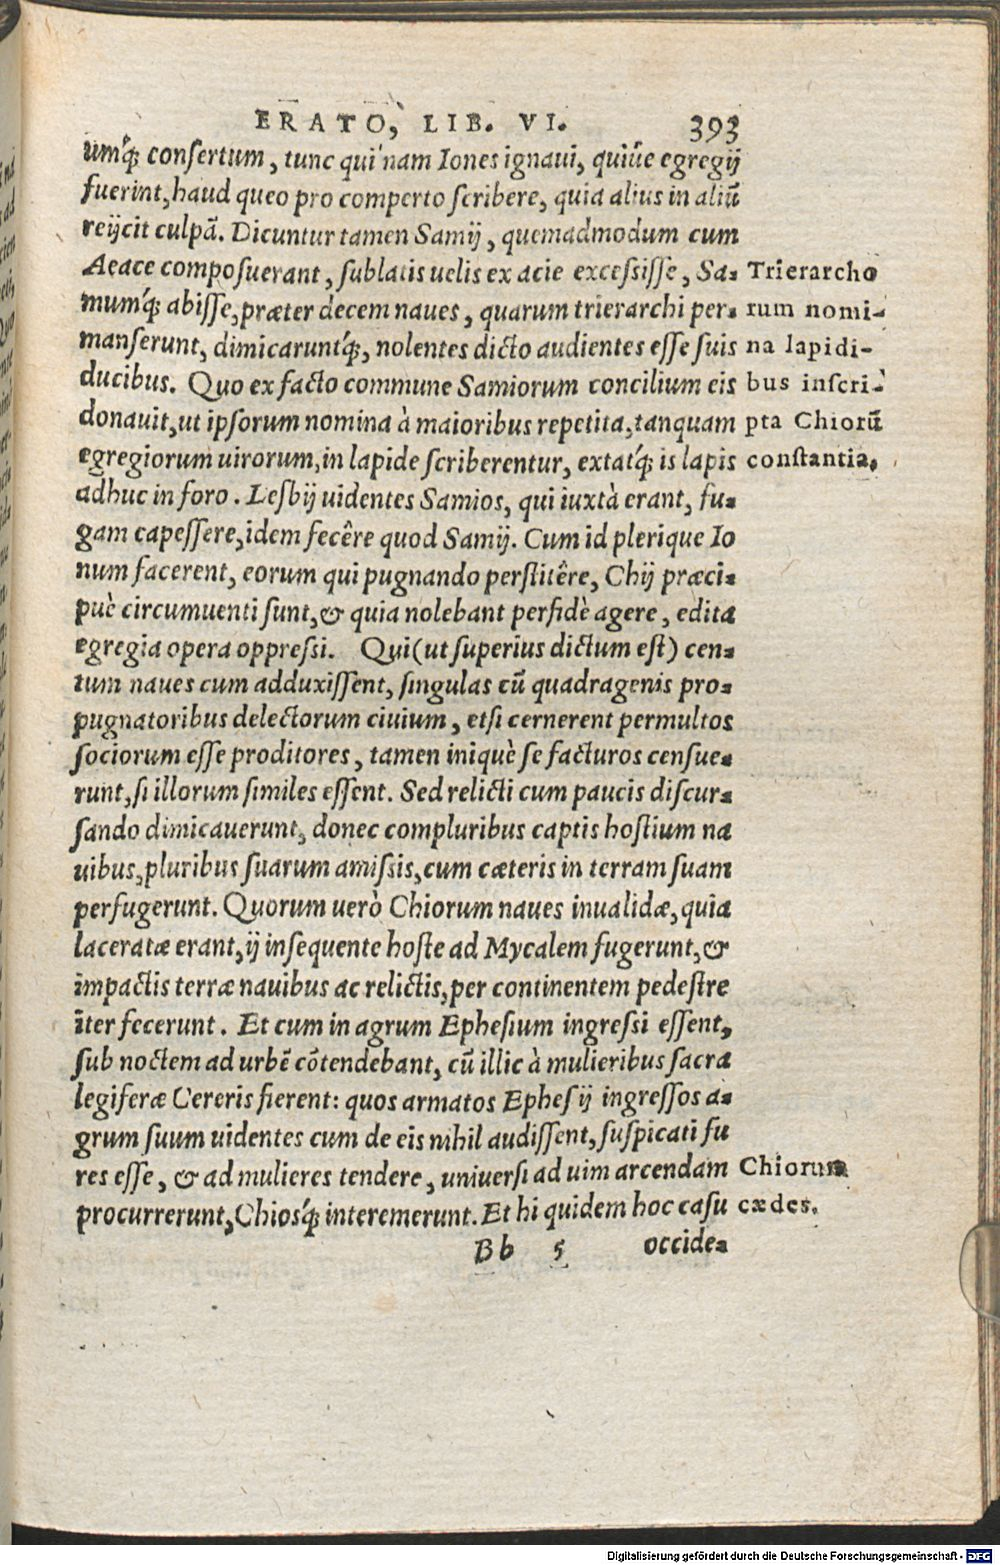 ERATO, LIB. VI. 393
umq́; consertum, tunc qui nam Iones ignaui, quiûe egregij
fuerint, haud queo pro comperto scribere, quia alius in aliũ
reijcit culpã. Dicuntur tamen Samij, quemadmodum cum
Aeace composuerant, sublatis uelis ex acie excessisse, Sa-
mumq́; abisse, præter decem naues, quarum trierarchi per-
manserunt, dimicaruntq́;, nolentes dicto audientes esse suis
ducibus. Quo ex facto commune Samiorum concilium eis
donauit, ut ipsorum nomina à maioribus repetita, tanquam
egregiorum uirorum, in lapide scriberentur, extatq́; is lapis
adhuc in foro. Lesbij uidentes Samios, qui iuxtà erant, fu-
gam capessere, idem fecêre quod Samij. Cum id plerique Io
num facerent, eorum qui pugnando perstitêre, Chij præci-
puè circumuenti sunt, & quia nolebant perfidè agere, edita
egregia opera oppressi. Qui (ut superius dictum est) cen-
tum naues cum adduxissent, singulas cũ quadragenis pro-
pugnatoribus delectorum ciuium, etsi cernerent permultos
sociorum esse proditores, tamen iniquè se facturos censue-
runt, si illorum similes essent. Sed relicti cum paucis discur-
sando dimicauerunt, donec compluribus captis hostium na
uibus, pluribus suarum amissis, cum cæteris in terram suam
perfugerunt. Quorum uerò Chiorum naues inualidæ, quia
laceratæ erant, ij insequente hoste ad Mycalem fugerunt, &
impactis terræ nauibus ac relictis, per continentem pedestre
iter fecerunt. Et cum in agrum Ephesium ingressi essent,
sub noctem ad urbẽ cõtendebant, cũ illic à mulieribus sacra
legiferæ Cereris fierent: quos armatos Ephesij ingressos a-
grum suum uidentes cum de eis nihil audissent, suspicati fu
res esse, & ad mulieres tendere, uniuersi ad uim arcendam
procurrerunt, Chiosq́; interemerunt. Et hi quidem hoc casu
Bb 5 occide-
Trierarcho
rum nomi-
na lapidi-
bus inscri-
pta Chiorũ
constantia.
Chiorum
cædes.
Digitalisierung gefördert durch die Deutsche Forschungsgemeinschaft - DFG